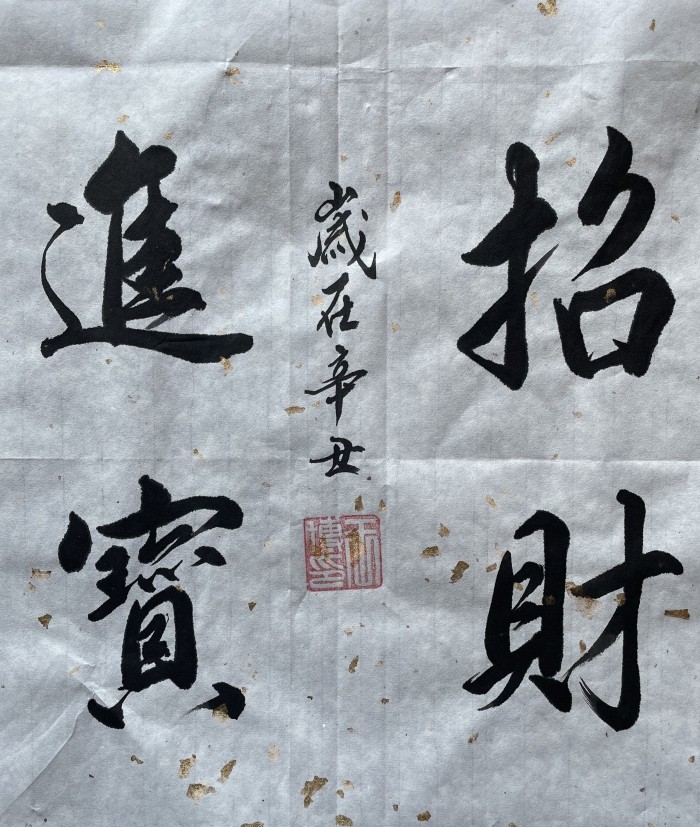 招財
歲在辛丑
進寶